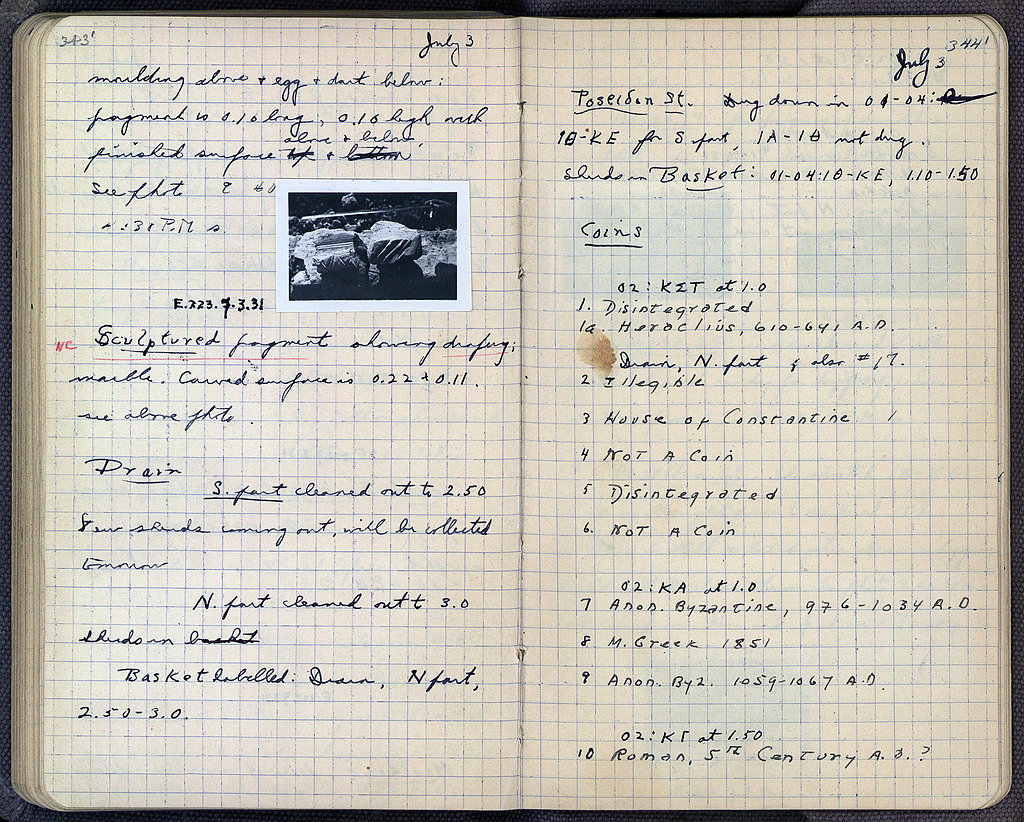 343'
July 3
moulding above + egg + dart below:
fragment is 0.10 long, 0.10 high with
above + below,
finished surface top + bottom
See phot
4:30 P.M
E.223.7.3.31
NC Sculptured fragment showing drapery;
marble. Carved surface is 0.22 x 0.11.
see above photo.
Drain
S. part cleaned out to 2.50
Few sherds coming out, will be collected
tomorrow
N. part cleaned out to 3.0
sherds in basket
Basket labelled: Drain, N part,
2.50-3.0.
344'
July 3
Poseidon St. Dug down in 01-04:
1Θ-KE for S part, 1A-1Θ not dug.
Sherds in Basket: 01-04:1Θ-KE, 1.10-1.50
Coins
02: KΣT at 1.0
1. Disintegrated
1a. Heraclius, 610-641 A.D.
Drain, N. part ; also #17.
2 Illegible
3 House of Constantine 1
4 NOT A Coin
5 Disintegrated
6. NOT A Coin
02: KA at 1.0
7 Anon. Byzantine, 976-1034 A.D.
8 M. Greek 1851
9 Anon. Byz. 1059-1067 A.D.
02: KΓ at 1.50
10 Roman, 5th Century A.D.?